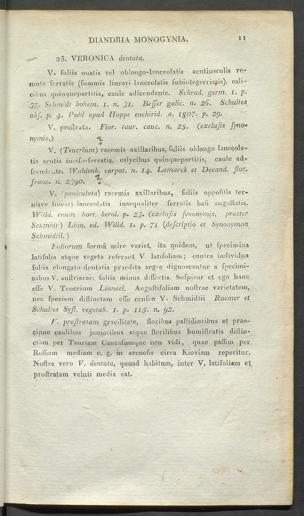 DIANDRIA MONOGYNIA. 11
25. VERONICA dentata.
V. foliis ouatis vel oblongo-lanceolatis acutiusculis remote serratis (summis lineari lanceolatis subintegerrimis), calicibus quinquepartitis, caule adscendente. Schrad. germ. I. p.
37. Schmidt bohem. I. n. 31. Besser galic. n. 26. Schultes
obs. p. 4. Pohl apud Hoppe enchirid. a. 1807. p. 29.
V. prostrata. Flor. taur. canc. n. 25. (exclusis syno-
nymis.)
V. (Teucrium) racemis axillaribus, foliis oblongo lanceola-
tis acutis incisoserratis, calycibus quinquepartitis, caule ad-
scendente. Wahlenb. carpat. n. 14. Lamarck et Decand. flor.
franc. n. 2390.
V. (paniculata) racemis axillaribus, foliis oppositis ter-
nisve lineari-lanceolatis inaequaliter serratis basi angustatis.
Willd. enum hort. berol. p. 23. (exclusis synonymis, praeter
Schmidt) Linn. ed. Willd. I. p. 71 (descriptio et Synonymon
Schmidtii.)
Foliorum forma mire variat, ita quidem, ut specimina
latifolia atque vegeta referant V. latifoliam; contra individua
foliis elongato-dentatis praedita aegre dignoscantur a specimi-
nibus V. austriacae: foliis minus dissectis. Suspicor et ego hanc
esse V. Teucrium Linnaei. Angustifoliam nostrae varietatem,
nec speciem distinctam esse censeo V. Schmidtii Roemer et
Schultes Syst. vegetab. I. p. 115. n. 92.
V. prostratam gracilitate, floribus pallidioribus et prae-
cipue caulibus junioribus atque sterilibus humistratis distin-
ctam per Tauriam Caucasumque non vidi, quae passim per
Rossiam mediam e. g. in arenosis circa Kioviam reperitur.
Nostra vero V. dentata, quoad habitum, inter V. latifoliam et
prostratam veluti media est.